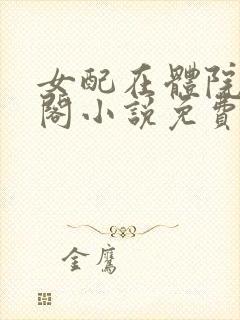 女配在體院
閣小說免費
金鷹